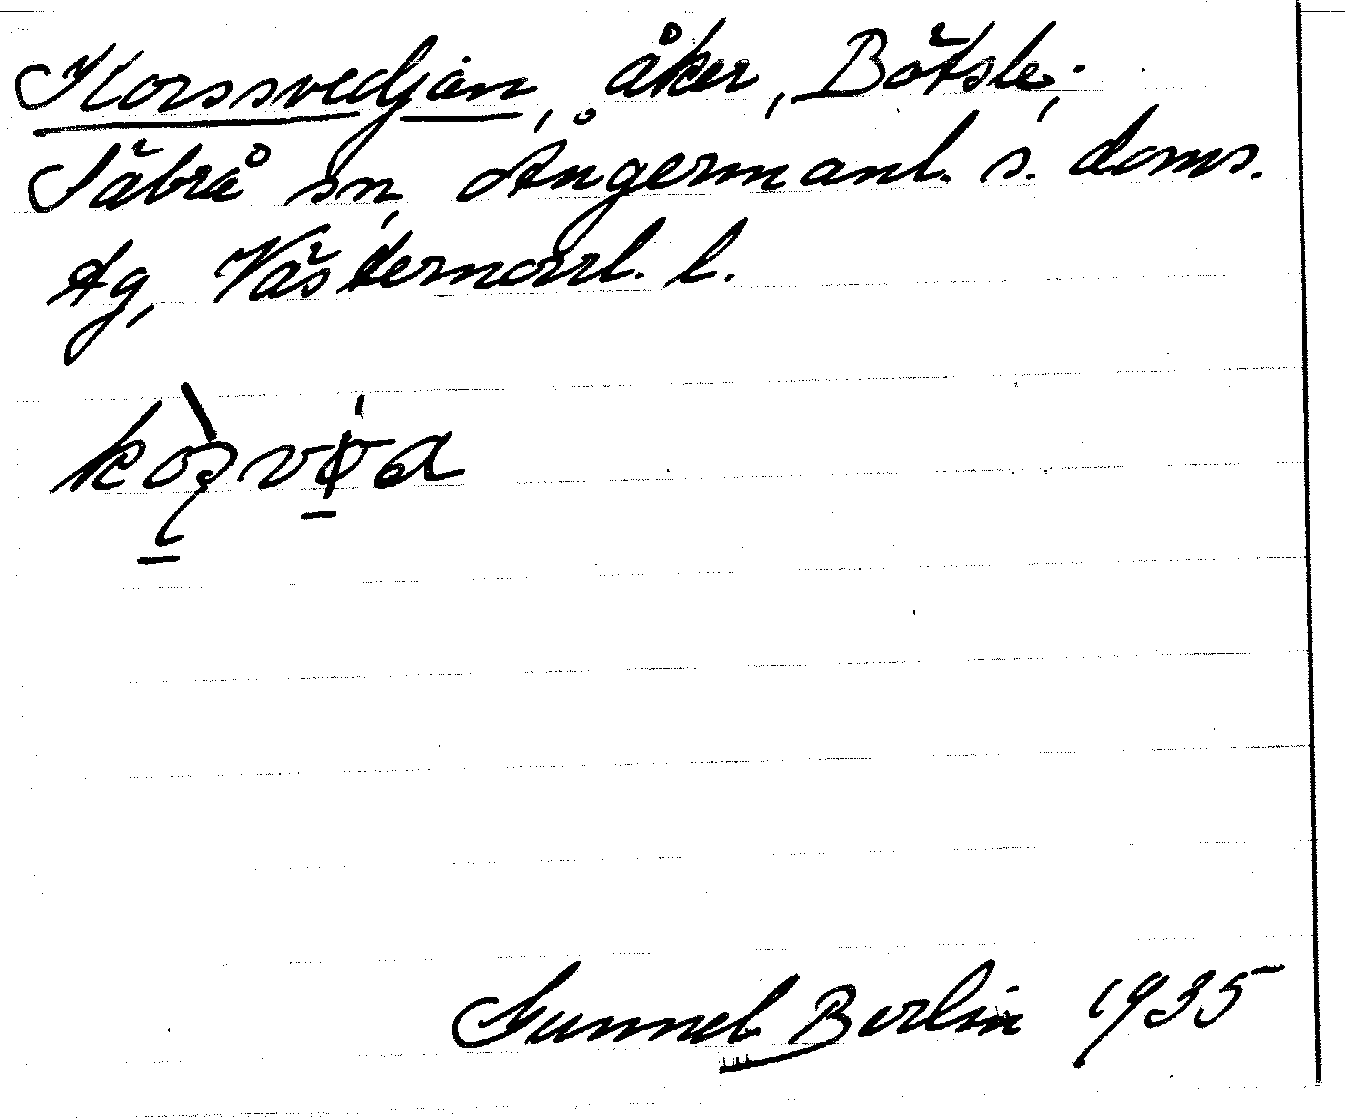 Korssvedjan, åker, Bötsle,
Säbrå sn, Ångermanl. s. doms.
tg, Västernorrl. l.
Gunnel Berlin 1935